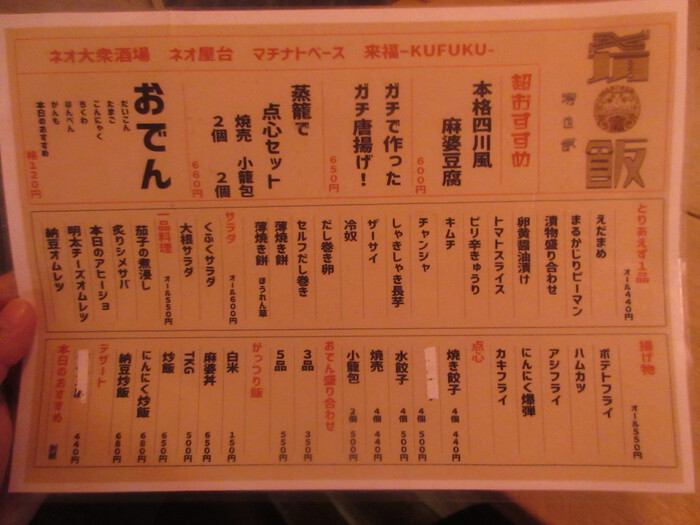 ネオ大衆酒場 ネオ屋台 マチナトベース 来福-KUFUKU-
飯
超おすすめ
本格四川風
麻婆豆腐
600円
ガチで作った
ガチ唐揚げ!
650円
蒸籠で
点心セット
焼売 小籠包
2個 2個
660円
おでん
だいこん
たまご
こんにゃく
ちくわ
はんぺん
がんも
本日のおすすめ
120円
とりあえず1品
オール440円
えだまめ
まるかじりピーマン
漬物盛り合わせ
卵黄醤油漬け
トマトスライス
ピリ辛きゅうり
キムチ
チャンジャ
しゃきしゃき長芋
ザーサイ
冷奴
だし巻き卵
セルフだし巻き
薄焼き餅
薄焼き餅 ほうれん草
サラダ
オール600円
くふくサラダ
大根サラダ
一品料理
オール550円
茄子の煮浸し
炙りシメサバ
本日のアヒージョ
明太チーズオムレツ
納豆オムレツ
揚げ物
オール550円
ポテトフライ
ハムカツ
アジフライ
にんにく爆弾
カキフライ
点心
焼き餃子 4個 440円
4個 500円
水餃子 4個 500円
焼売 4個 440円
小籠包 2個 500円
おでん盛り合わせ
3品 350円
5品 550円
がっつり飯
白米 150円
麻婆丼 650円
TKG 500円
炒飯 650円
にんにく炒飯 680円
納豆炒飯 680円
デザート
440円
本日のおすすめ